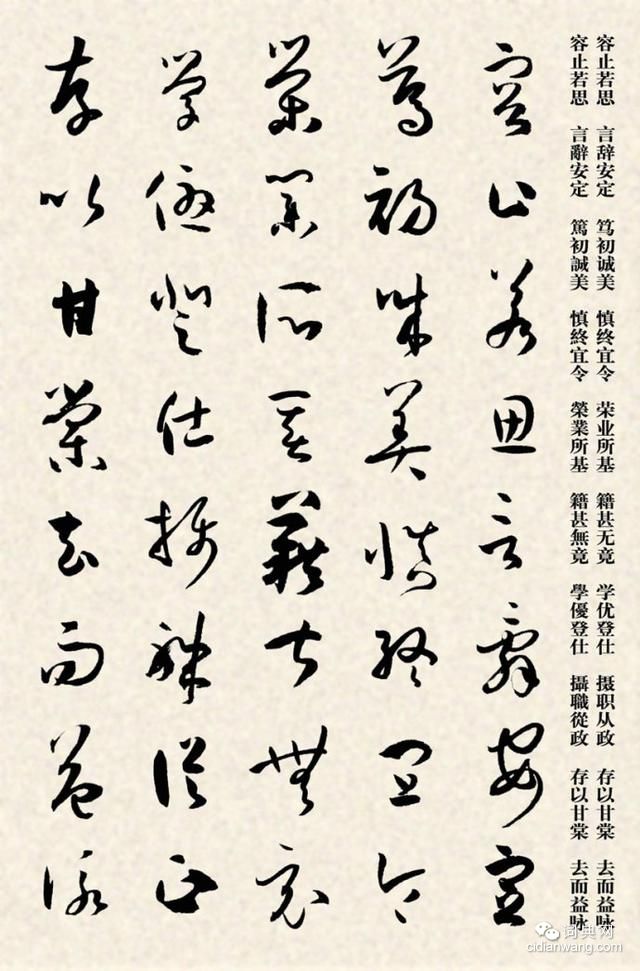 容止若思 言辞安定 笃初诚美 慎终宜令 荣业所基 籍甚无竟 学优登仕 摄职从政 存以甘棠 去而益咏
容止若思 言辭安定 篤初誠美 慎終宜令 榮業所基 籍甚無竟 學優登仕 攝職從政 存以甘棠 去而益咏
容止若思言辭安定
篤初誠美慎終宜令
榮業所基藉甚無竟
學優登仕攝職從政
存以甘棠去而益詠
词典网
cidianwang.com